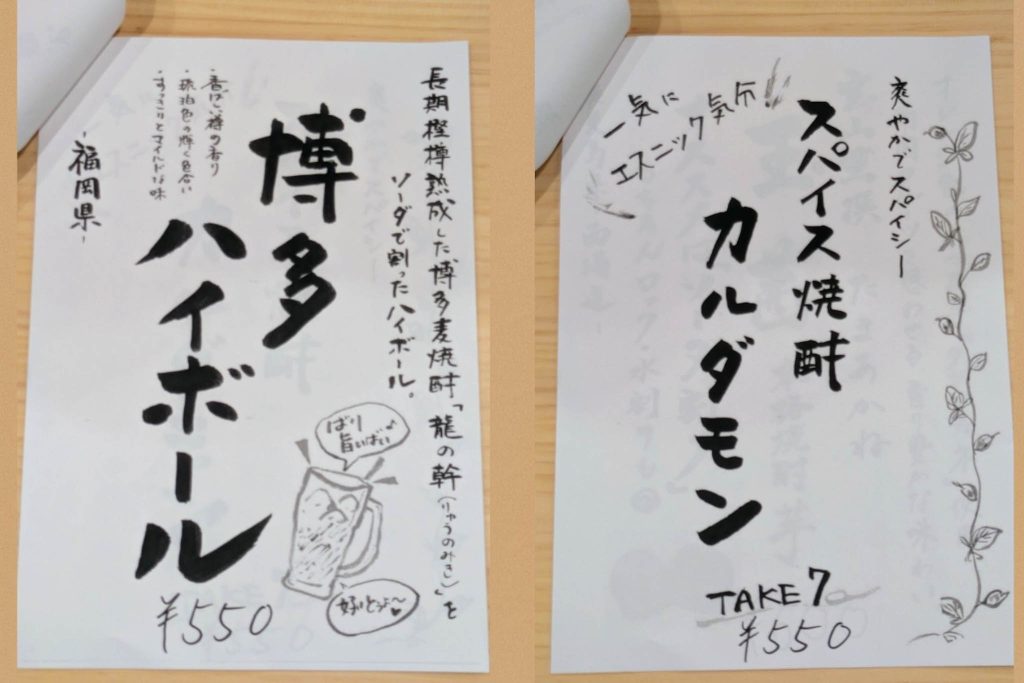 長期樫樽熟成した博多麦焼酎「龍の幹(りゅうのみき)」を
ソーダで割ったハイボール。
博多
ハイボール
・香ばしい樽の香り
・琥珀色の輝く色合い
・すっきりとマイルドな味
-福岡県-
ばり
旨いばい♪
好いとうよ〜♥
¥550
爽やかでスパイシー
スパイス焼酎
カルダモン
一気に
エスニック気分!
TAKE7
¥550